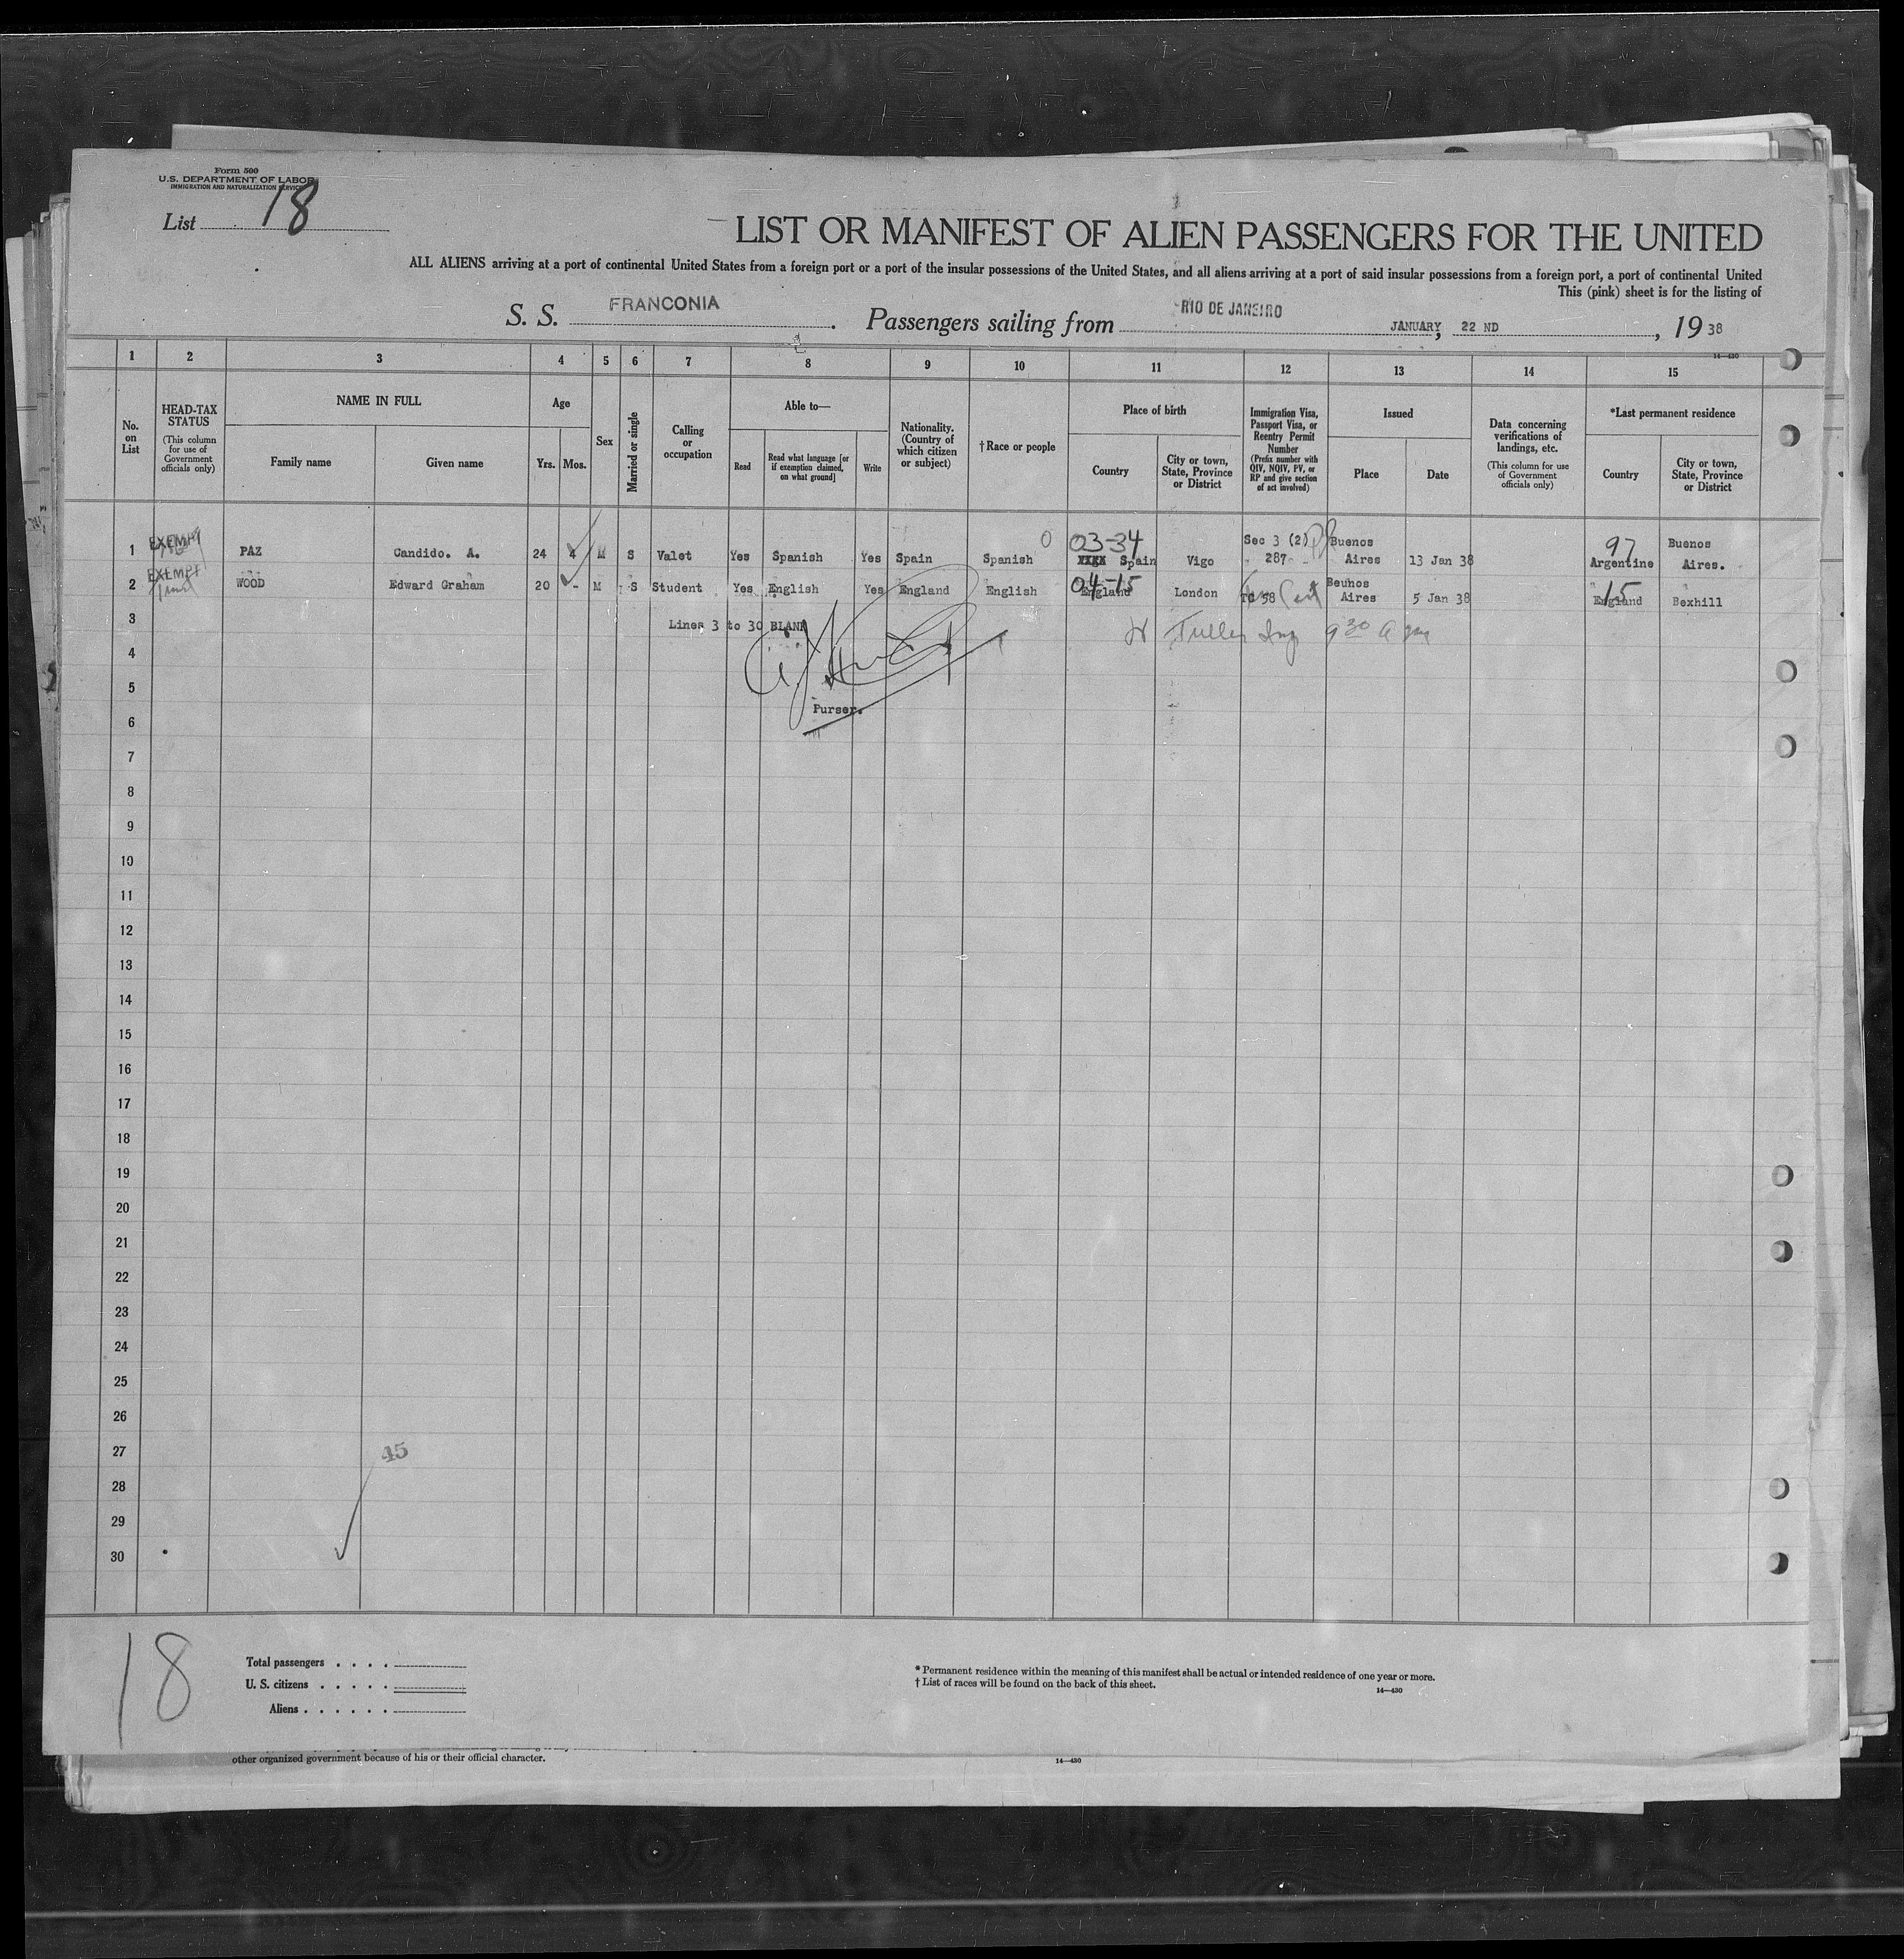 Form 500
U.S. DEPARTMENT OF LABOR
IMMIGRATION AND NATURALIZATION SERVICE
List 18
LIST OR MANIFEST OF ALIEN PASSENGERS FOR THE UNITED
ALL ALIENS arriving at a port of continental United States from a foreign port or a port of the insular possessions of the United States, and all aliens arriving at a port of said insular possessions from a foreign port, a port of continental United
This (pink) sheet is for the listing of
S. S. FRANCONIA. Passengers sailing from RIO DE JANEIRO JANUARY, 22 ND, 1938
14—430
1 2 3 4 5 6 7 8 9 10 11 12 13 14 15
No. on List
HEAD-TAX STATUS
(This column for use of Government officials only)
NAME IN FULL
Family name
Given name
Age
Yrs.
Mos.
Sex
Married or single
Calling or occupation
Able to—
Read
Read what language [or if exemption claimed, on what ground]
Write
Nationality. (Country of which citizen or subject)
†Race or people
Place of birth
Country
City or town, State, Province or District
Immigration Visa, Passport Visa, or Reentry Permit Number
(Prefix number with QIV, NQIV, PV, or RP and give section of act involved)
Issued
Place
Date
Data concerning verifications of landings, etc.
(This column for use of Government officials only)
*Last permanent residence
Country
City or town, State, Province or District
1 EXEMPT PAZ Candido. A. 24 4 M S Valet Yes Spanish Yes Spain Spanish 03-34 XXXX Spain Vigo Sec 3 (2) 287 Buenos Aires 13 Jan 38 97 Argentine Buenos Aires.
2 EXEMPT WOOD Edward Graham 20 - M S Student Yes English Yes England English 04-15 England London 58 Beuhos Aires 5 Jan 38 15 England Bexhill
3 Lines 3 to 30 BLANK
4
5
Purser.
6
7
8
9
10
11
12
13
14
15
16
17
18
19
20
21
22
23
24
25
26
27 45
28
29
30
18
Total passengers
U. S. citizens
Aliens
* Permanent residence within the meaning of this manifest shall be actual or intended residence of one year or more.
† List of races will be found on the back of this sheet.
14—430
other organized government because of his or their official character.
14—430